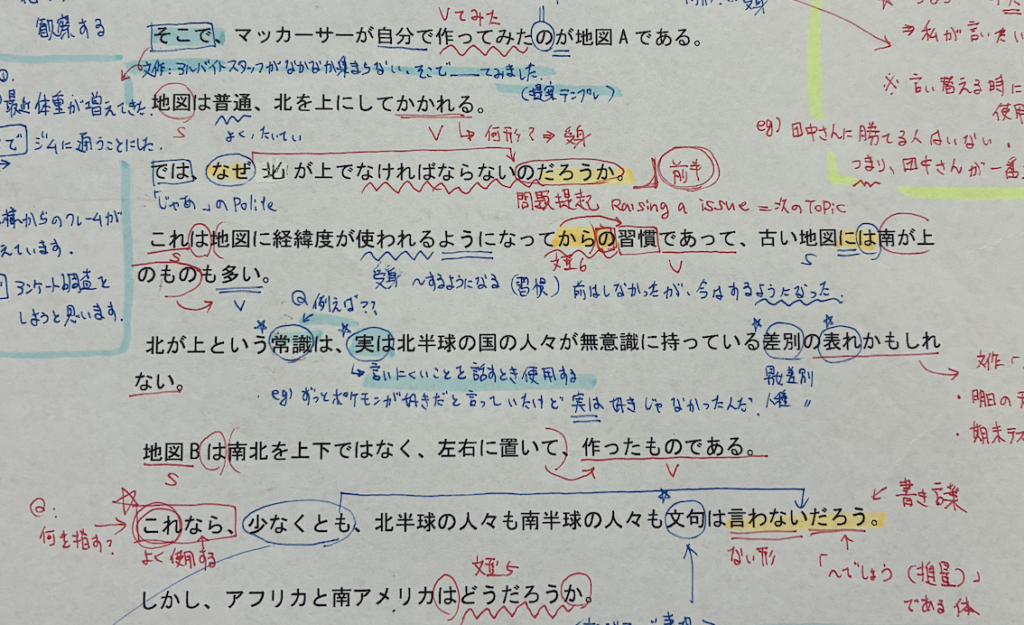 観察する
Vてみた
⇒私が言いたい
そこで、マッカーサーが自分で作ってみたのが地図Aである。
文作：アルバイトスタッフがなかなか集まらない、そこで――てみました。
(提案テンプレ)
※言い替える時に
使用
最近体重が増えてきた。
地図は普通、北を上にしてかかれる。
S
よく、たいてい
V
↳何形？→受身
ジムに通うことにした。
eg) 田中さんに勝てる人はいない。
つまり、田中さんが一番
では、なぜ北が上でなければならないのだろうか。
前半
「じゃあ」のPolite
問題提起 Raising a issue = 次のTopic
様からのクレームが
えています。
これは地図に経緯度が使われるようになってからの習慣であって、古い地図には南が上
S
文型6
V
S
のものも多い。
V
受身 〜するようになる (習慣) 前はしなかったが、今はするようになった。
アンケート調査を
しようと思います。
Q 例えば??
北が上という常識は、実は北半球の国の人々が無意識に持っている差別の表れかもしれ
ない。
↳言いにくいことを話すとき使用する
男女差別
人種 〃
eg) ずっとポケモンが好きだと言っていたけど実は好きじゃなかったんだ。
文作「
・明日の
・期末テス
地図Bは南北を上下ではなく、左右に置いて、作ったものである。
S
V
書き言葉
Q:
何を指す？
これなら、少なくとも、北半球の人々も南半球の人々も文句は言わないだろう。
よく使用する
ない形
「〜でしょう (推量)」
である体
文型5
しかし、アフリカと南アメリカはどうだろうか。